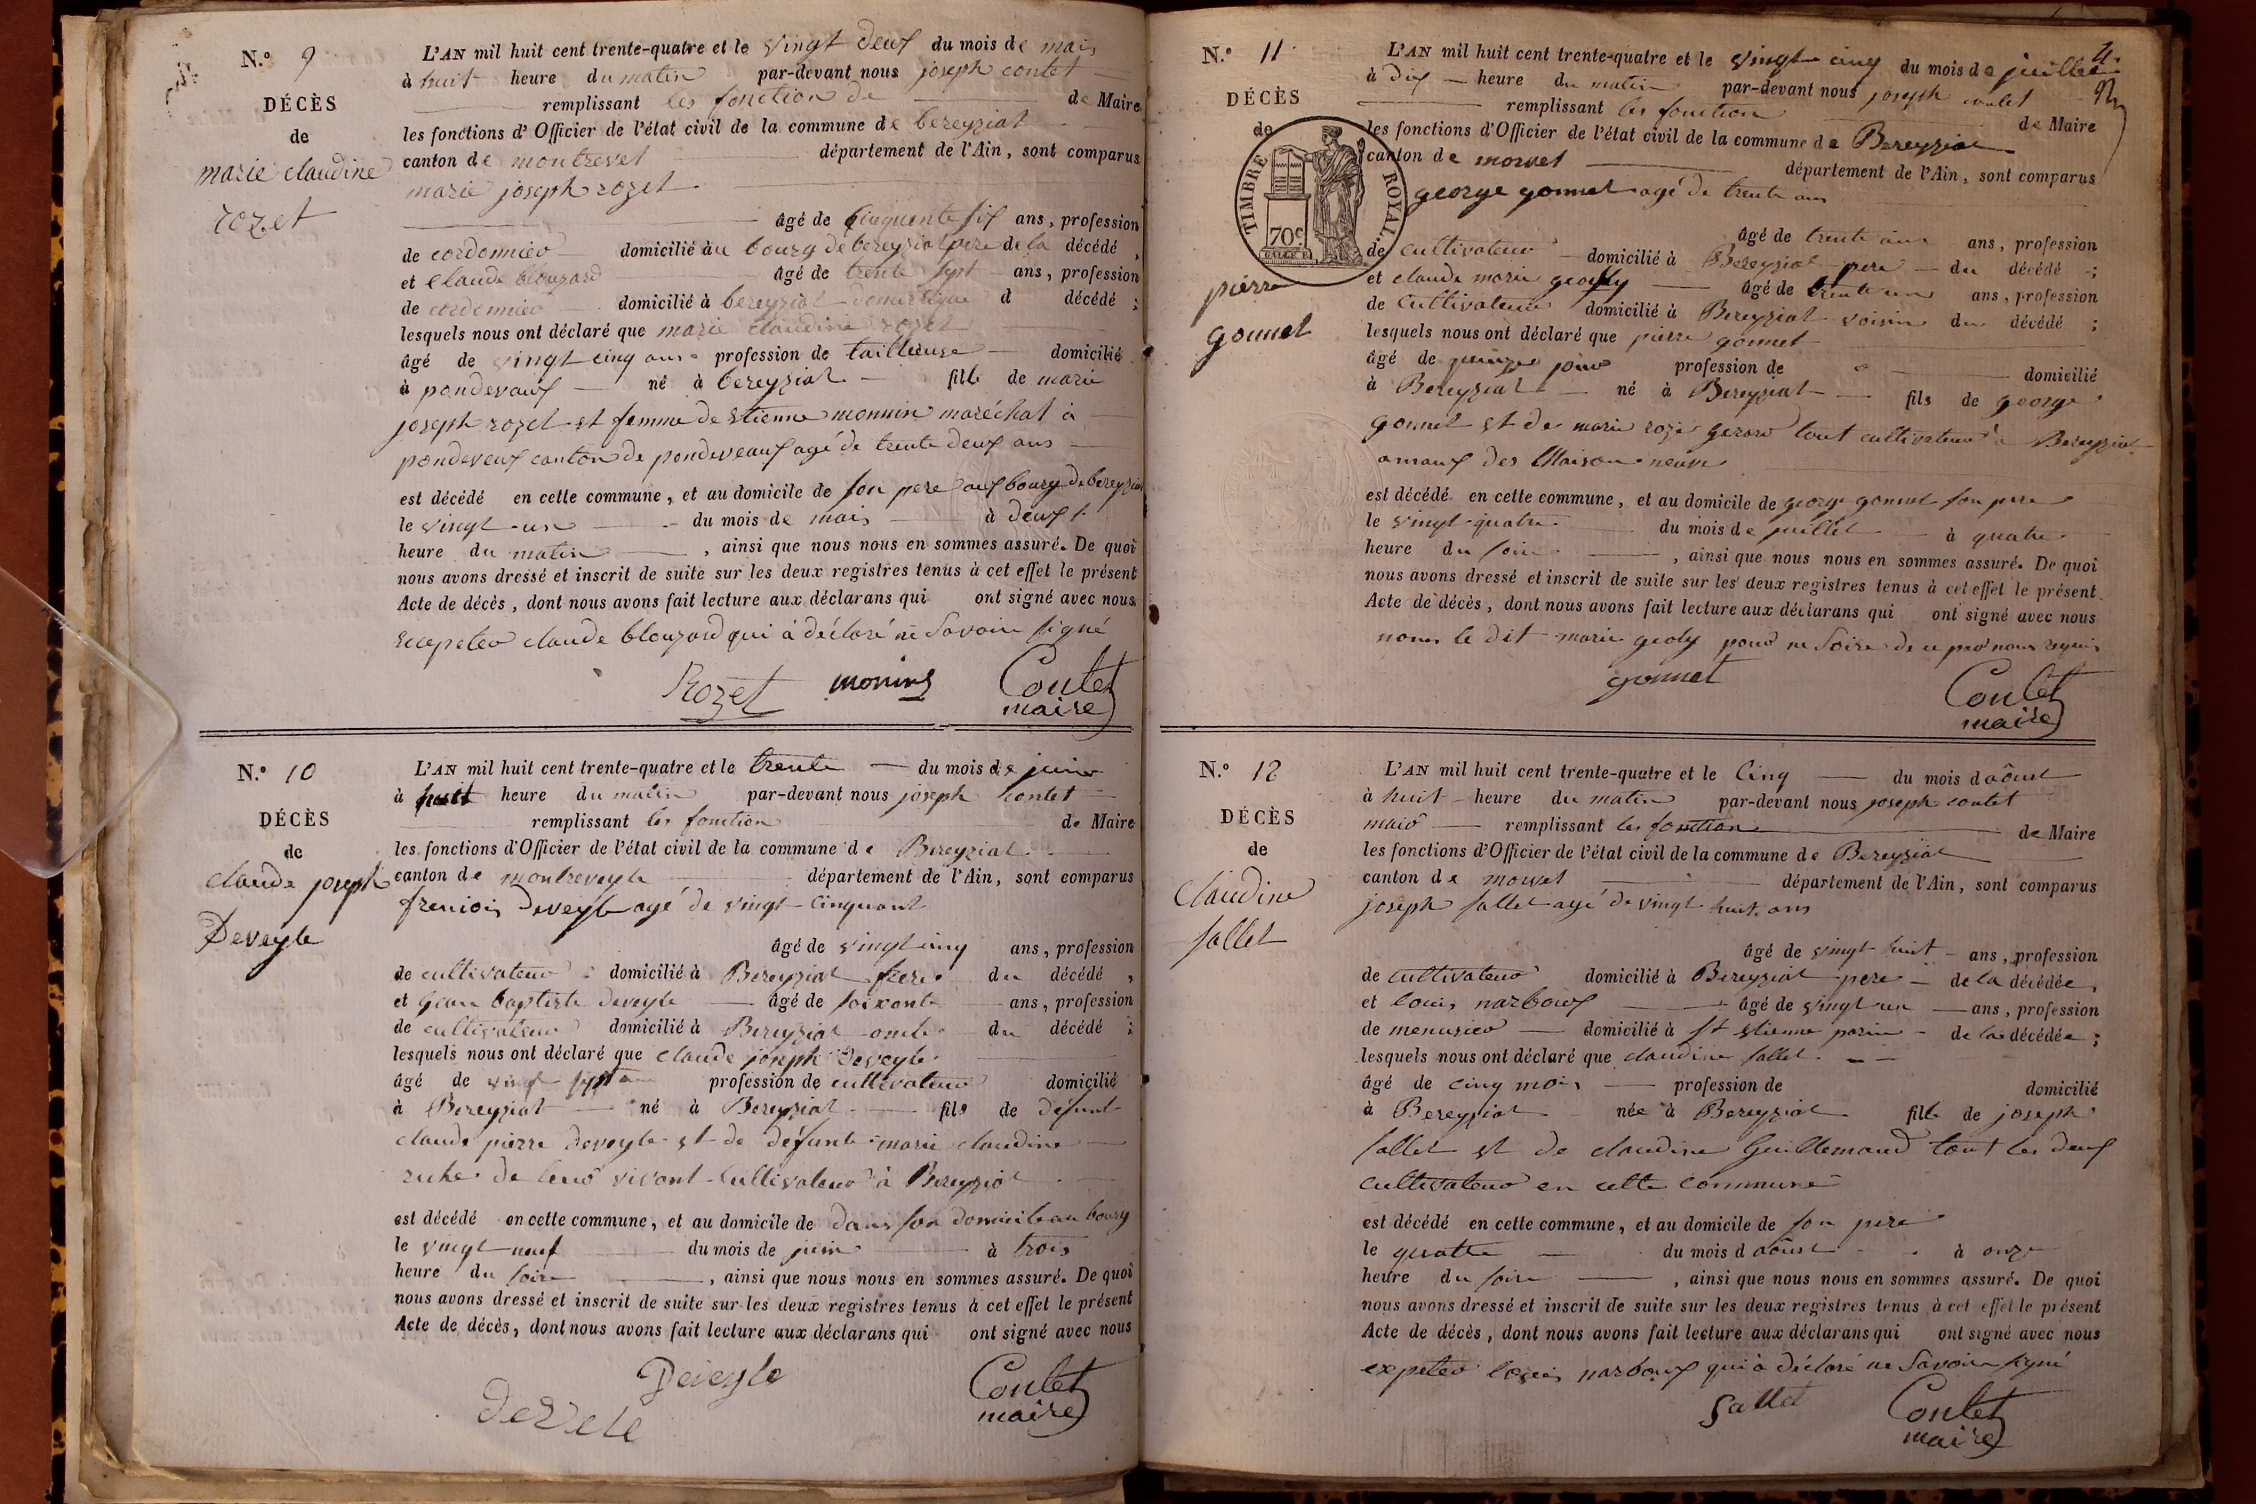 N.º 9
DÉCÈS
de
marie claudine
rozet
L'AN mil huit cent trente-quatre et le vingt deux du mois de mais
à huit heure du matin par-devant nous joseph contet
remplissant les fonction de de Maire
les fonctions d'Officier de l'état civil de la commune de bereyziat
canton de montrevel département de l'Ain, sont comparus
marie joseph rozet
âgé de cinquente six ans, profession
de cordonnier domicilié au bourg de bereyziat pere de la décédé,
et claude blouzard âgé de trente sept ans, profession
de cordonnier domicilié à bereyziat domestique d décédé;
lesquels nous ont déclaré que marie claudine rozet
âgé de vingt cinq ans profession de tailleuse domicilié
à pondevaux né à bereyziat fille de marie
joseph rozet et femme de etienne monnin maréchal à
pondeveux canton de pondeveaux agé de trente deux ans
est décédé en cette commune, et au domicile de son pere aux bourg de bereyziat
le vingt-un du mois de mais à deux
heure du matin, ainsi que nous nous en sommes assuré. De quoi
nous avons dressé et inscrit de suite sur les deux registres tenus à cet effet le présent
Acte de décès, dont nous avons fait lecture aux déclarans qui ont signé avec nous
claude blouzard qui à déclaré ne savoir signé
Rozet monins Contet
maire
N.º 10
DÉCÈS
de
claude joseph
Deveyle
L'AN mil huit cent trente-quatre et le trente du mois de juin
à huit heure du matin par-devant nous joseph contet
remplissant les fonction de Maire
les fonctions d'Officier de l'état civil de la commune de Bereyziat
canton de montreveyle département de l'Ain, sont comparus
Deveyle agé de vingt-cinq
âgé de vingt cinq ans, profession
de cultivateur domicilié à Bereyziat frere du décédé,
et Jean baptiste deveyle âgé de soixante ans, profession
de cultivateur domicilié à Bereyziat oncle du décédé;
lesquels nous ont déclaré que claude joseph Deveyle
âgé de vingt sept profession de cultivateur domicilié
à Bereyziat né à Bereyziat fils de défunt
claude pierre deveyle et de défunte marie claudine
de leur vivant cultivateur à Bereyziat
est décédé en cette commune, et au domicile de dans son domicile au bourg
le vingt-neuf du mois de juin à trois
heure du soir, ainsi que nous nous en sommes assuré. De quoi
nous avons dressé et inscrit de suite sur les deux registres tenus à cet effet le présent
Acte de décès, dont nous avons fait lecture aux déclarans qui ont signé avec nous
Deveyle Contet
devele maire
N.º 11
DÉCÈS
de
TIMBRE ROYAL
70c
pierre
gonnet
L'AN mil huit cent trente-quatre et le vingt-cinq du mois de juillet
à dix heure du matin par-devant nous joseph contet
remplissant les fonction de Maire
les fonctions d'Officier de l'état civil de la commune de Bereyziat
canton de département de l'Ain, sont comparus
george gonnet agé de trente ans
âgé de trente ans ans, profession
de cultivateur domicilié à Bereyziat pere du décédé;
et claude marie geoly âgé de trente un ans, profession
de cultivateur domicilié à Bereyziat voisin du décédé;
lesquels nous ont déclaré que pierre gonnet
âgé de quinze jour profession de domicilié
à Bereyziat né à Bereyziat fils de george
gonnet et de marie roze tout cultivateur à Bereyziat
amaux des Maison neuve
est décédé en cette commune, et au domicile de george gonnet son pere
le vingt-quatre du mois de juillet à quatre
heure du soir, ainsi que nous nous en sommes assuré. De quoi
nous avons dressé et inscrit de suite sur les deux registres tenus à cet effet le présent
Acte de décès, dont nous avons fait lecture aux déclarans qui ont signé avec nous
non le dit marie geoly pour ne de ce par nous requis
gonnet Contet
maire
N.º 12
DÉCÈS
de
Claudine
sallet
L'AN mil huit cent trente-quatre et le cinq du mois d aôust
à huit heure du matin par-devant nous joseph contet
mair remplissant les fonction de Maire
les fonctions d'Officier de l'état civil de la commune de Bereyziat
canton de département de l'Ain, sont comparus
joseph sallet agé de vingt huit ans
âgé de vingt huit ans, profession
de cultivateur domicilié à Bereyziat pere de la décédée,
et louis narboux âgé de vingt un ans, profession
de menusier domicilié à St etienne parin de la décédée;
lesquels nous ont déclaré que claudine sallet
âgé de cinq mois profession de domicilié
à Bereyziat née à Bereyziat fille de joseph
sallet et de claudine Guillemaud tout les deux
cultivateur en cette commune
est décédé en cette commune, et au domicile de son pere
le quatre du mois d aôust à onze
heure du soir, ainsi que nous nous en sommes assuré. De quoi
nous avons dressé et inscrit de suite sur les deux registres tenus à cet effet le présent
Acte de décès, dont nous avons fait lecture aux déclarans qui ont signé avec nous
louis narboux qui à déclaré ne savoir signé
sallet Contet
maire